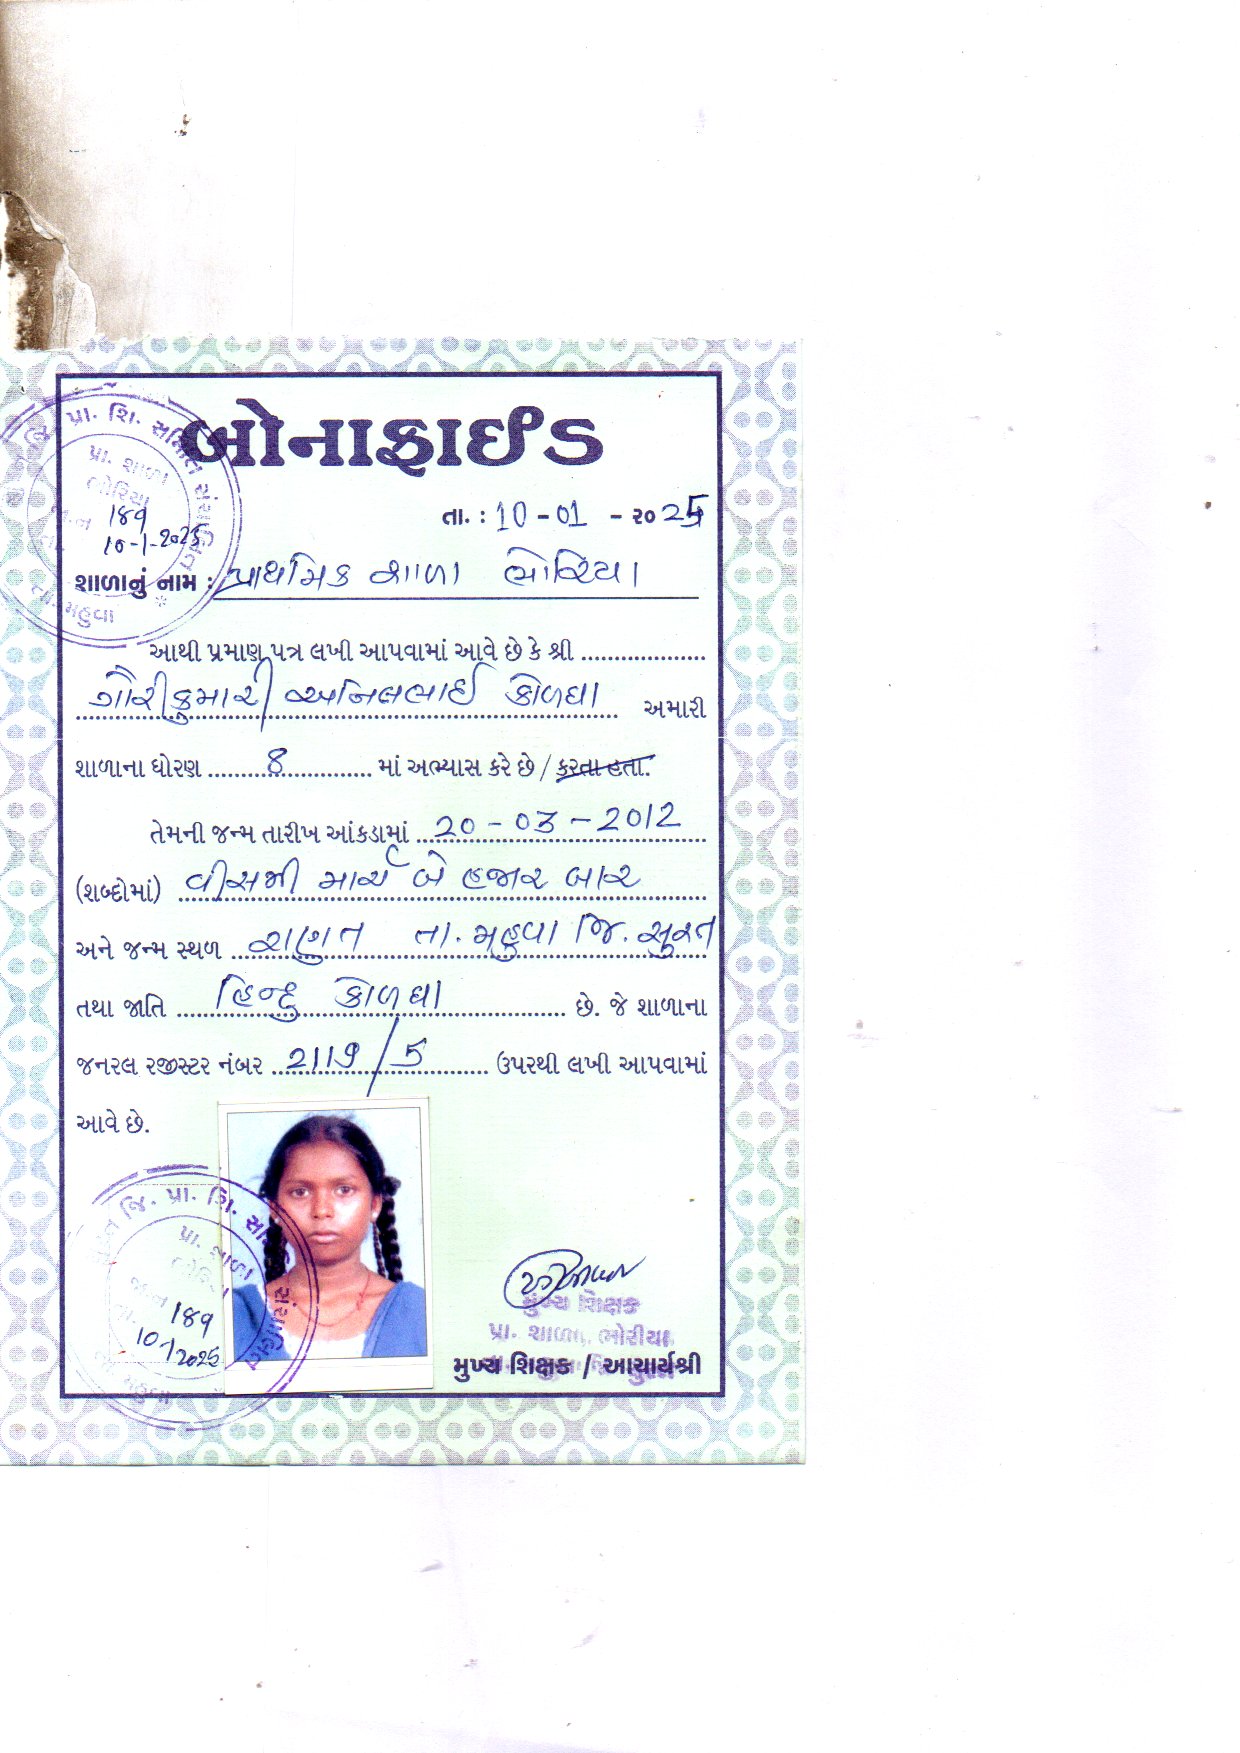 બોનાફાઈડ
તા. : 10 - 01 - ૨૦25
શાળાનું નામ : પ્રાથમિક શાળા ભોરિયા
આથી પ્રમાણ પત્ર લખી આપવામાં આવે છે કે શ્રી
ગૌરીકુમારી અનિલભાઈ કોળઘા અમારી
શાળાના ધોરણ 8 માં અભ્યાસ કરે છે / કરતા હતા.
તેમની જન્મ તારીખ આંકડામાં 20 - 03 - 2012
(શબ્દોમાં) વીસમી માર્ચ બે હજાર બાર
અને જન્મ સ્થળ શણુત તા. મહુવા જિ. સુરત
તથા જાતિ હિન્દુ કોળઘા છે. જે શાળાના
જનરલ રજીસ્ટર નંબર 2119/5 ઉપરથી લખી આપવામાં
આવે છે.
જિ. પ્રા. શિ. સમિતિ સંચાલિત
પ્રા. શાળા
ભોરિયા
જા.ન 189
તા. 10-1-2025
મહુવા
જિ. પ્રા. શિ.
પ્રા. શાળા
જા.ન 189
તા. 10-1-2025
મહુવા
મુખ્ય શિક્ષક
પ્રા. શાળા, ભોરીયા
મુખ્ય શિક્ષક / આચાર્યશ્રી